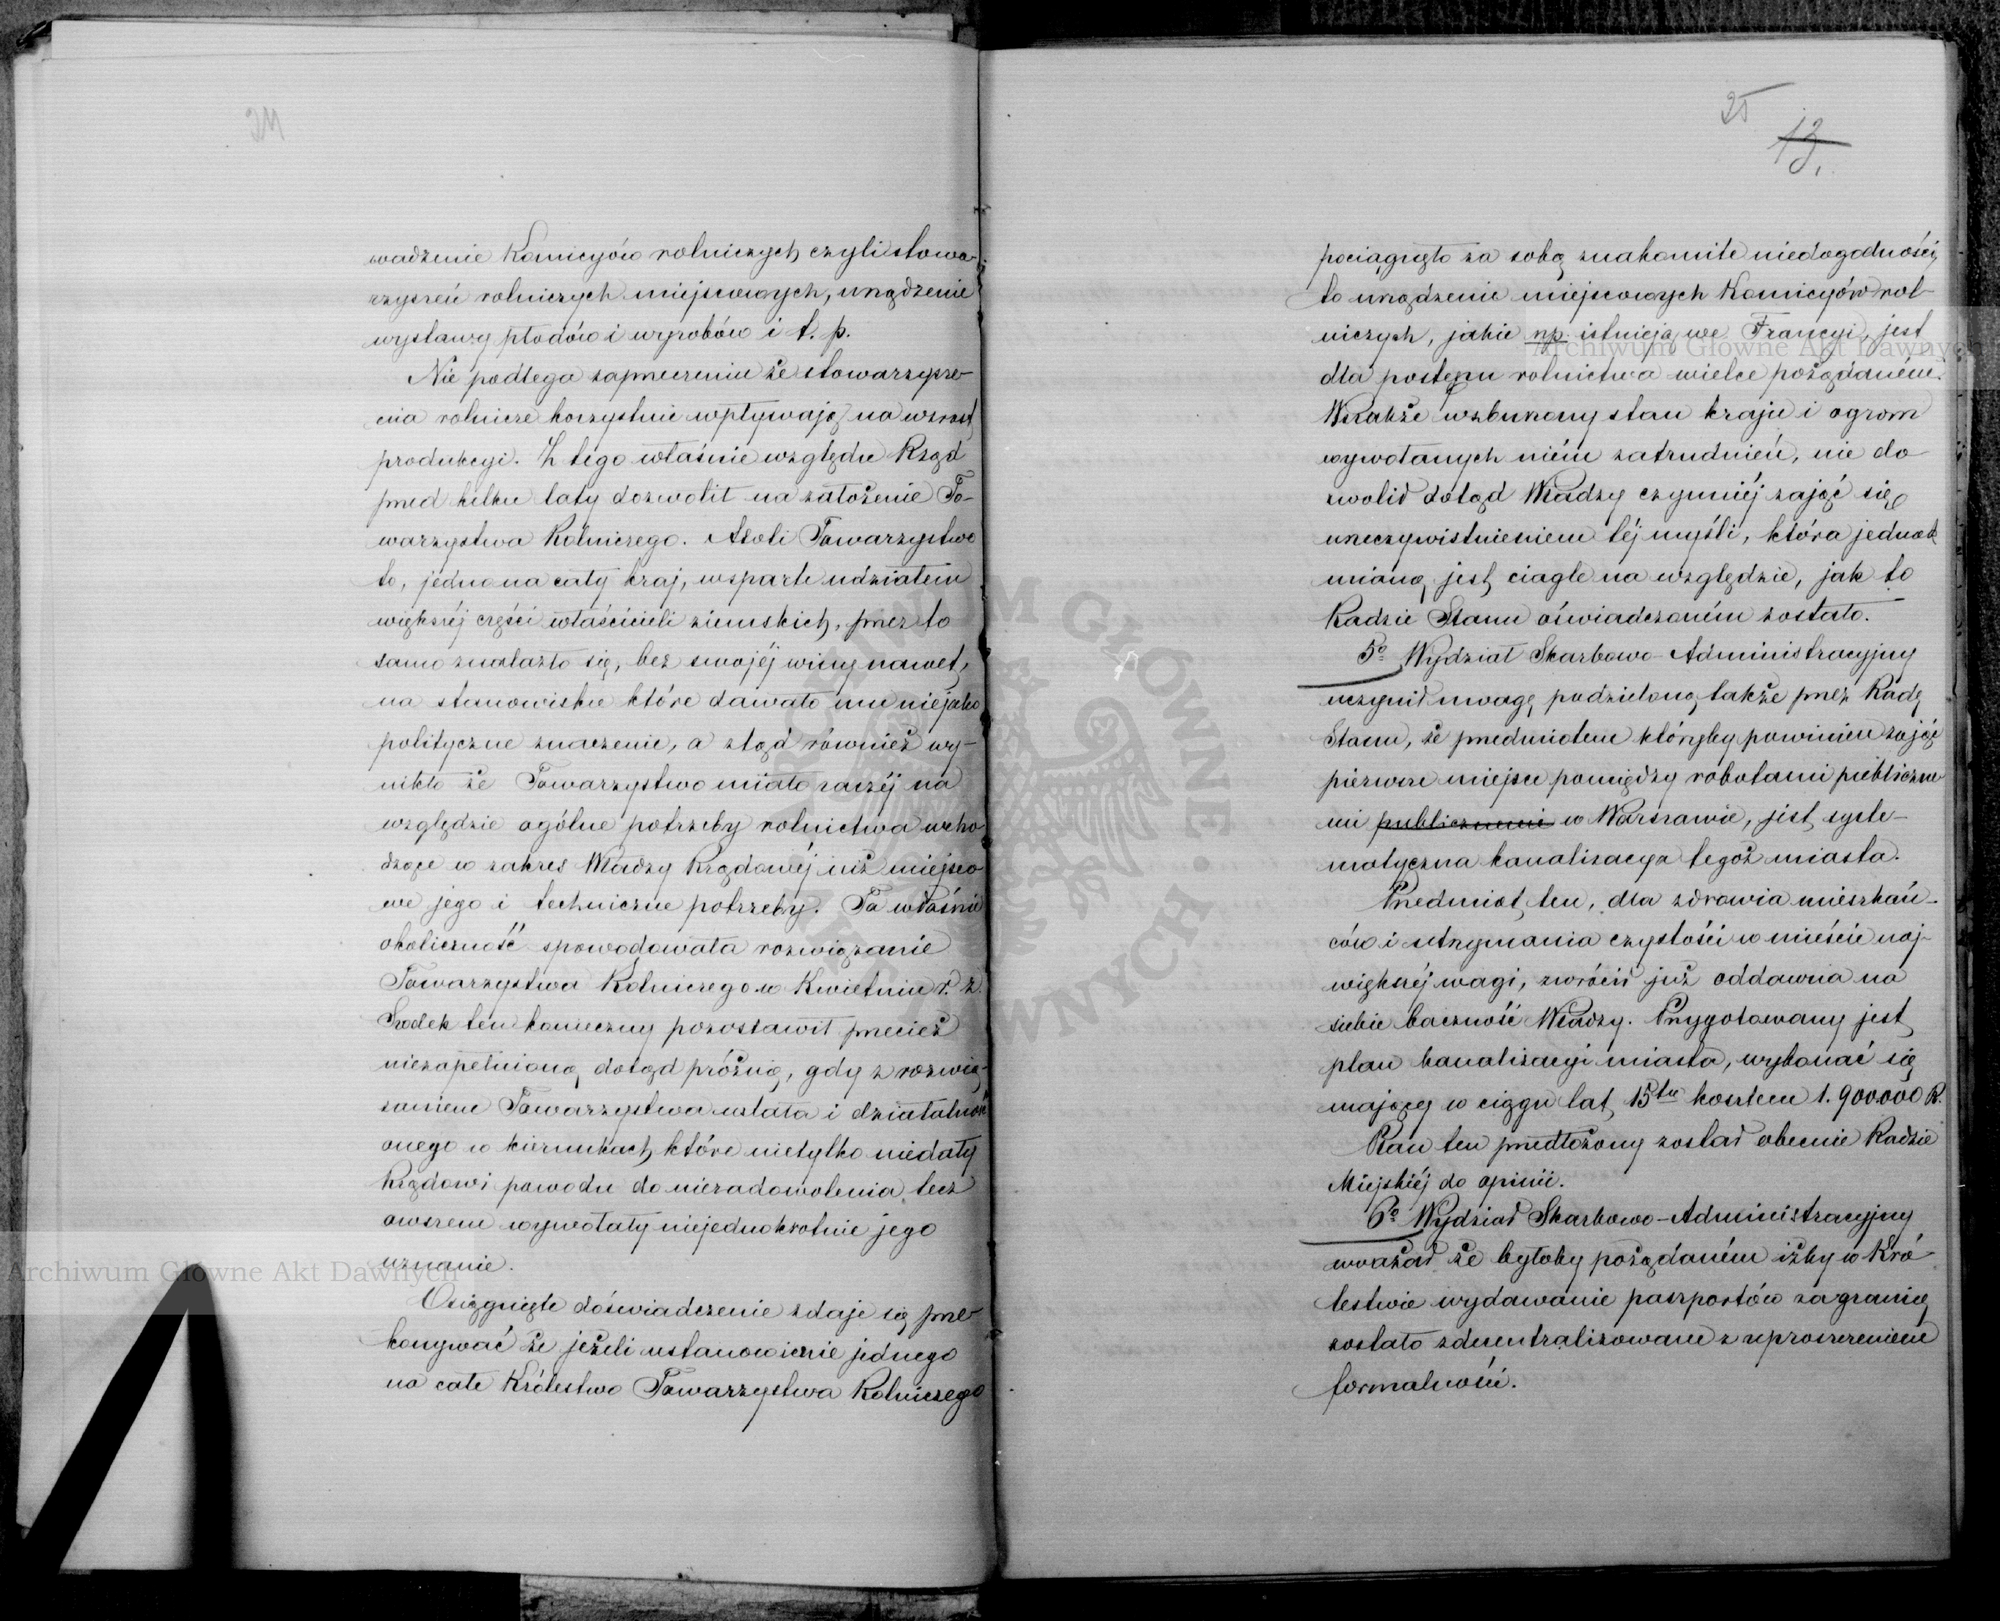 wadzenie Komicyów rolniczych czyli stowa-
rzyszeń rolniczych miejscowych, urządzenie
wystawy płodów i wyrobów i t. p.
Nie podlega zaprzeczeniu że stowarzysze-
nia rolnicze korzystnie wpływają na wzrost
produkcyi. Z tego właśnie względu Rząd
przed kilku laty dozwolił na założenie To-
warzystwa Rolniczego. Atoli Towarzystwo
to, jedno na cały kraj, wsparte udziałem
większéj części właścicieli ziemskich, przez to
samo znalazło się, bez swojéj winy nawet,
na stanowisku które dawało mu niejako
polityczne znaczenie, a ztąd również wy-
nikło że Towarzystwo miało raczéj na
względzie ogólne potrzeby rolnictwa wcho-
dzące w zakres Władzy Rządowéj niż miejsco-
we jego i techniczne potrzeby. Ta właśnie
okoliczność spowodowała rozwiązanie
Towarzystwa Rolniczego w Kwietniu r. z.
Środek ten konieczny pozostawił przecież
niezapełnioną dotąd próżnię, gdy z rozwią-
zaniem Towarzystwa ustała i działalność
onego w kierunkach które nietylko niedały
Rządowi powodu do niezadowolenia lecz
owszem wywołały niejednokrotnie jego
uznanie.
Osiągnięte doświadczenie zdaje się prze-
konywać że jeżeli ustanowienie jednego
na całe Królestwo Towarzystwa Rolniczego
25
13.
pociągnęło za sobą znakomite niedogodności,
to urządzenie miejscowych Komicyów rol-
niczych, jakie np. istnieją we Francyi, jest
dla postępu rolnictwa wielce pożądaném.
Wszakże wzburzony stan kraju i ogrom
wywołanych niém zatrudnień, nie do
zwolił dotąd Władzy czynniéj zająć się
urzeczywistnieniem téj myśli, która jednak
mianą jest ciągle na względzie, jak to
Radzie Stanu oświadczoném zostało.
5o Wydział Skarbowo-Administracyjny
uczynił uwagę podzieloną także przez Radę
Stanu, że przedmiotem któryby powinien zająć
pierwsze miejsce pomiędzy robotami publiczne-
mi publicznemi w Warszawie, jest syste-
matyczna kanalizacya tegoż miasta.
Przedmiot ten, dla zdrowia mieszkań-
ców i utrzymania czystości w mieście naj-
większéj wagi, zwrócił już oddawna na
siebie baczność Władzy. Przygotowany jest
plan kanalizacyi miasta, wykonać się
mający w ciągu lat 15tu kosztem 1.900.000 R.
Plan ten przedłożony został obecnie Radzie
Miejskiéj do opinii.
6o Wydział Skarbowo-Administracyjny
uważał że byłoby pożądaném iżby w Kró-
lestwie wydawanie paszportów za granicę
zostało zdecentralizowane z uproszczeniem
formalności.
Archiwum Główne Akt Dawnych
Archiwum Główne Akt Dawnych
ARCHIWUM GŁÓWNE AKT DAWNYCH